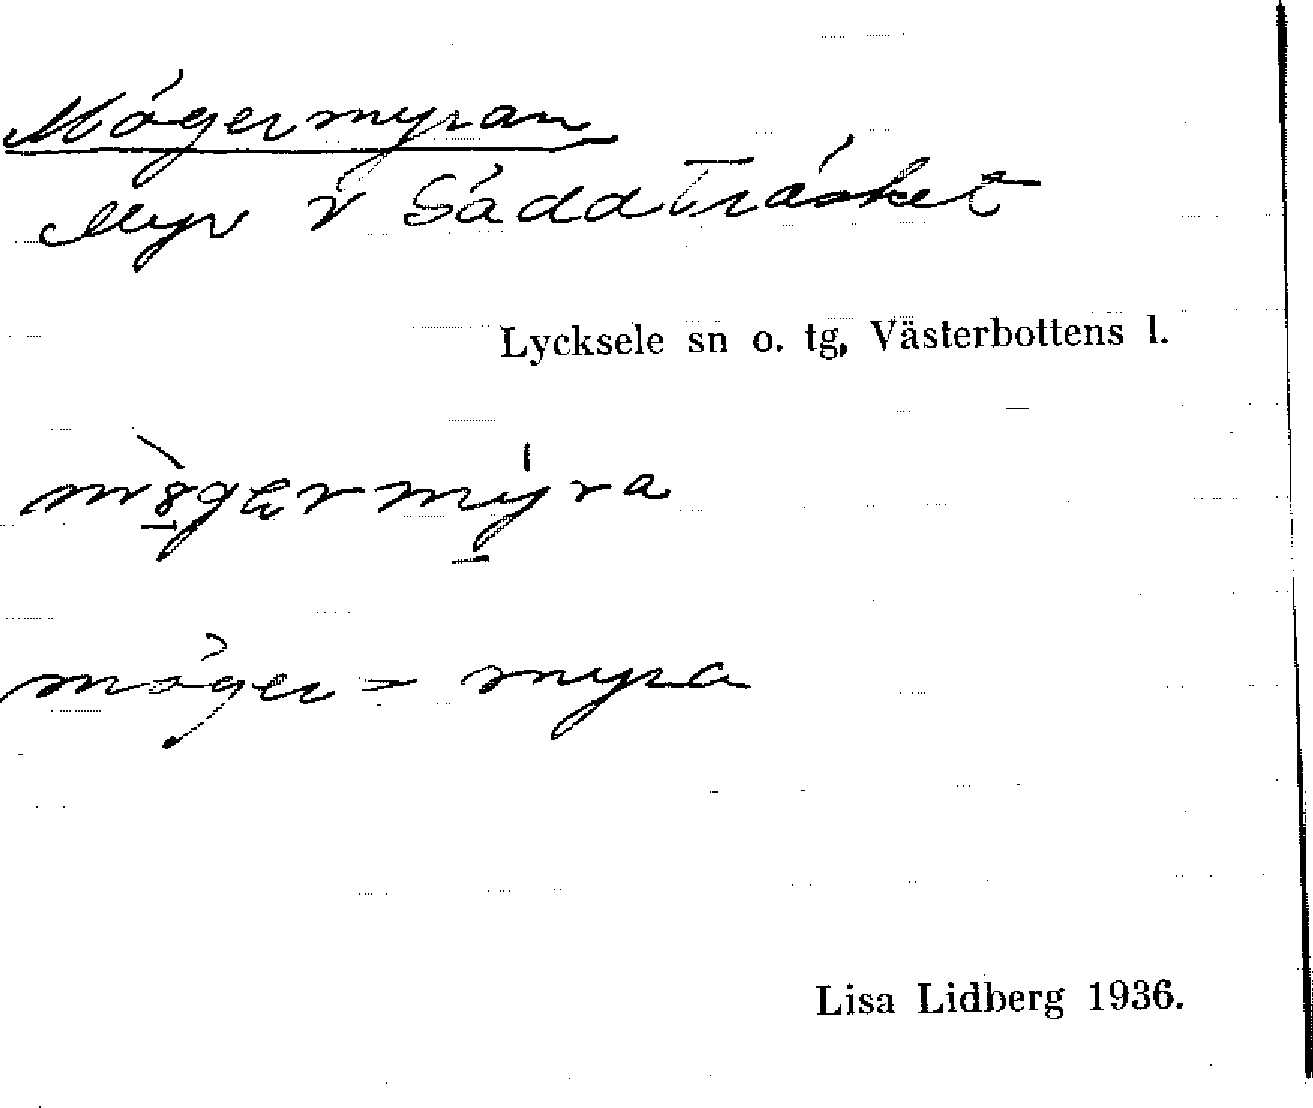 Mögermyran
Myr v Sädd Träsket
Lycksele sn o. tg, Västerbottens l.
möger-myra
Lisa Lidberg 1936.